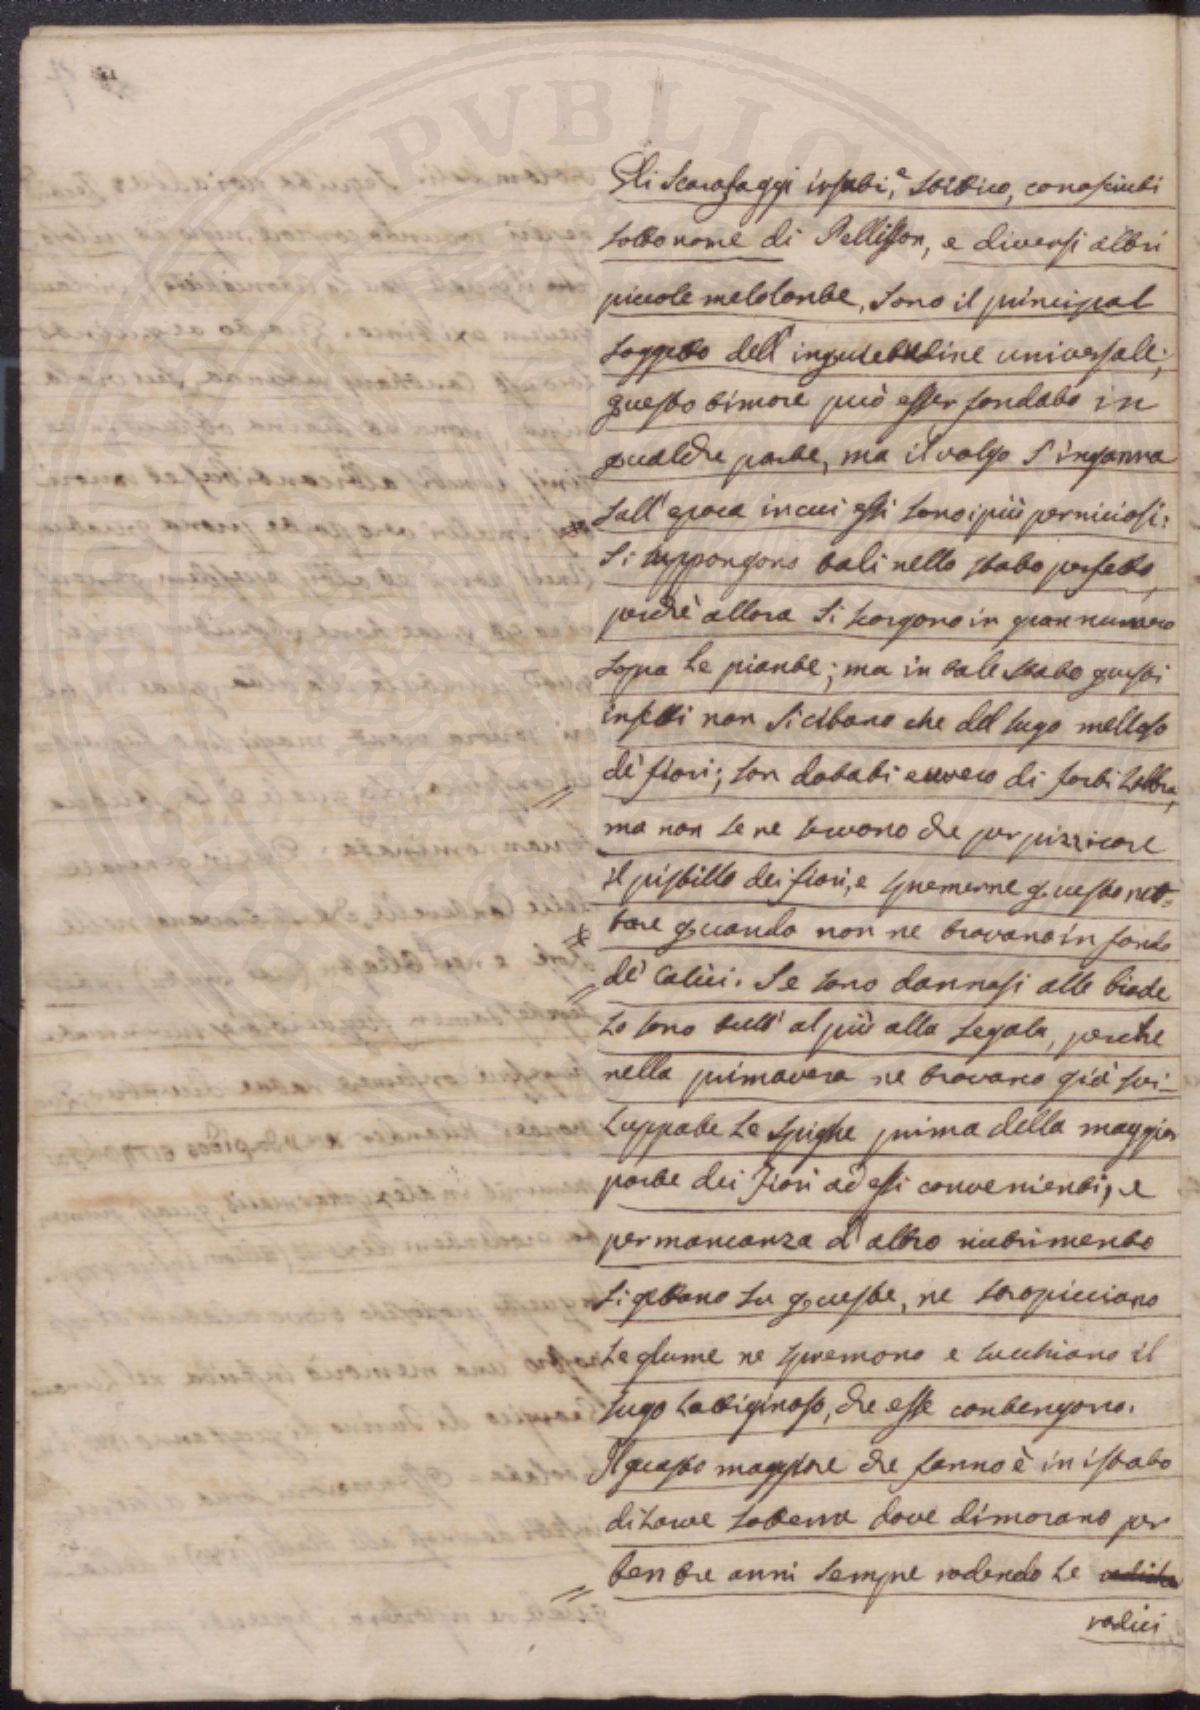 PVBLIC
Gli Scarafaggi irsuti, e stitico, conosciuti
sotto nome di Pellisson, e diversi altri
piccole melolonte, sono il principal
soggetto dell'inquietudine universale;
questo timore può esser fondato in
qualche parte, ma il volgo s'inganna
sull'epoca in cui essi sono i più perniciosi:
si suppongono tali nello stato perfetto,
perchè allora si scorgono in gran numero
sopra le piante; ma in tale stato questi
insetti non si cibano che del sugo melloso
de' fiori; son dotati è vero di forti labbra,
ma non se ne servono che per pizzicare
il pistillo dei fiori, e spremerne questo net=
tare quando non ne trovano in fondo
de' Calici. Se sono dannosi alle biade
lo sono tutt'al più alla segala, perche
nella primavera ne trovano già svi=
luppate le spighe prima della maggior
parte dei Fiori ad essi convenienti, e
per mancanza d'altro nutrimento
si gettano su queste, ne stropicciano
le glume ne spremono e succhiano il
sugo lattiginoso, che esse contengono.
Il guasto maggiore che fanno è in istato
di larve sotterra dove dimorano per
ben tre anni sempre rodendo le
radici